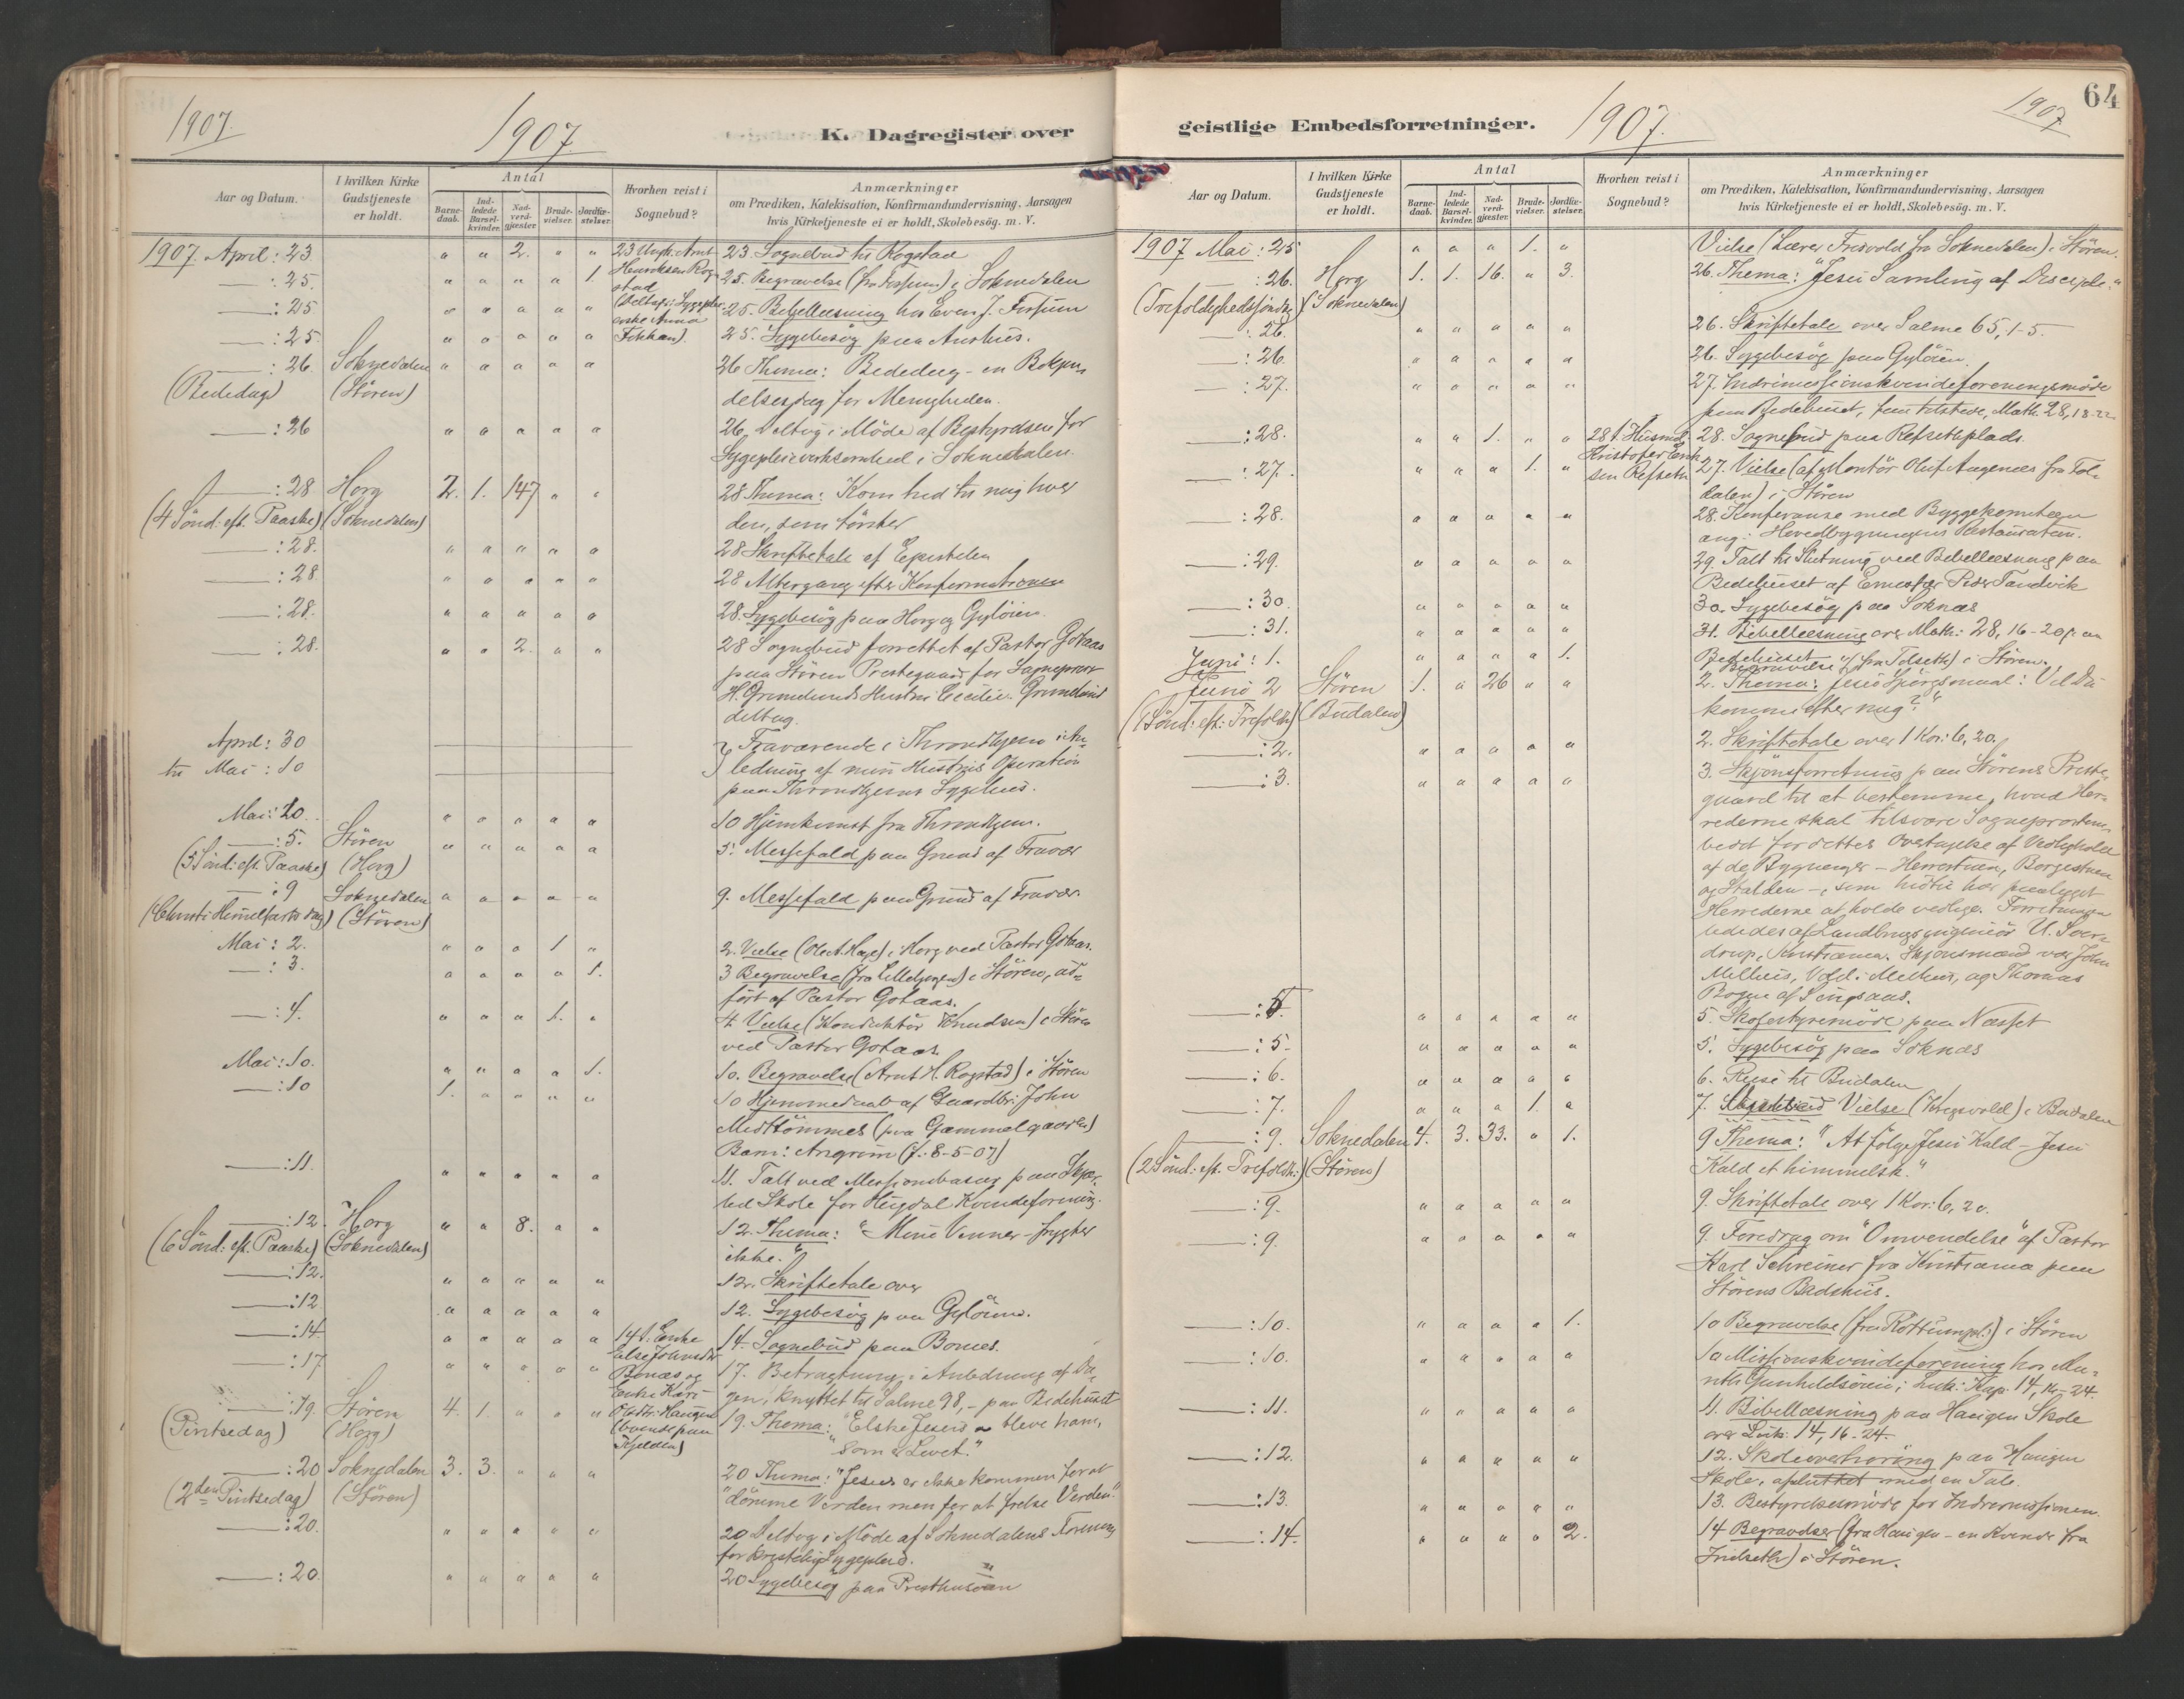 1907.
1907.
K. Dagregister over
Aar og Datum.
I hvilken Kirke
Gudstjeneste
er holdt.
Antal
Barne-
daab.
Ind-
ledede
Barsel-
kvinder.
Nad-
verd-
gjæster.
Brude-
vielser.
Jordfæ-
stelser.
Hvorhen reist i
Sognebud?
Anmærkninger
om Prædiken, Katekisation, Konfirmandundervisning, Aarsagen
hvis Kirketjeneste ei er holdt, Skolebesøg. m. V.
1907 April: 23 " " 2. " " 23 Ungk. Arnt 23. Sognebud til Rogstad
: 25. " " " " 1. Henriksen Rog- 25. Begravelse (fra Fossum) i Soknedalen
stad
: 25 " " " " " (Deltog: Sygeplei- 25. Bibellæsning hos Even J. Fossum
erske Anna
: 25 " " " " " Fokhan). 25. Sygebesøg paa Aushus.
: 26. Soknedalen " " " " " 26 Thema: Bededag - en Beken
(Bededag) (Støren) delsesdag for Menigheden.
: 26 " " " " " 26. Deltog i Møde af Bestyrelsen for
Sygepleievirksomhed i Soknedalen.
: 28 Horg 2. 1. 147 " " 28 Thema: Kom hid til mig hver
(4 Sønd: eft. Paaske) (Soknedalen) den, som tørster
: 28. " " " " " 28 Skriftetale af Epistelen
: 28 " " " " " 28 Altergang efter Konfirmationen
: 28. " " " " " 28. Sygebesøg paa Horg og Gyløien.
: 28. " " 2. " " 28 Sognebud forrettet af Pastor Gotaas
paa Støren Prestegaard for Sogneprest
H. Grundunds Hustru Cecilie. Grundund
deltog.
April: 30 Fraværende i Throndhjem i An-
til Mai: 10 ledning af min Hustrus Operation
paa Throndhjems Sygehus.
Mai: 10. " " " " " 10 Hjemkomst fra Throndhjem.
: 5. Støren " " " " " 5. Messefald paa Grund af Fravær
(5 Sønd: eft. Paaske) (Horg)
: 9 Soknedalen " " " " " 9. Messefald paa Grund af Fravær.
(Christi Himmelfarts dag) (Støren)
Mai: 2. " " " 1 " 2. Vielse (Olaf. Hage) i Horg ved Pastor Gotaas.
: 3. " " " " 1. 3 Begravelse (fra Lillehagen) i Støren, ud-
ført af Pastor Gotaas.
: 4. " " " 1. " 4. Vielse (Konduktør Knudsen) i Støren
ved Pastor Gotaas.
Mai: 10. " " " " 1. 10. Begravelse (Arnt H. Rogstad) i Støren
: 10 1. " " " " 10 Hjemmedaab af Gaardbr. John
Midttømmes (paa Gammelgaarden)
Barn: Arngrim (f. 8-5-07)
: 11. " " " " " 11. Talt ved Missionsbasar paa Skjær-
lid Skole for Hugdal Kvindeforening.
: 12. Horg " " 8. " " 12. Thema: "Mine Venner frygter
(6 Sønd: eft. Paaske) (Soknedalen) ikke."
: 12. " " " " " 12. Skriftetale over
: 12 " " " " " 12. Sygebesøg paa Gyløien.
: 14 " " " " " 14 1. Enke 14. Sognebud paa Bones.
Else Johnsdtr
: 17 " " " " " Bonæs og 17. Betragtning i Anledning af Da-
Enke Kari gen, knyttet til Salme 98, - paa Bedehuset
: 19. Støren 4. 1. " " " Olsdtr. Haugen 19. Thema: "Elske Jesus - bleve ham,
(Pintsedag) (Horg) (boende paa "som er Livet."
Kjelden)
: 20 Soknedalen 3. 3. " " " 20 Thema: "Jesus er ikke kommen for at
(2den Pintsedag) (Støren) "dømme Verden men for at frelse Verden."
: 20. " " " " " 20 Deltog i Møde af Soknedalens Forening
for kristelig Sygepleie.
: 20. " " " " " 20 Sygebesøg paa Presthusøien
64
1907
1907.
geistlige Embedsforretninger.
Aar og Datum.
I hvilken Kirke
Gudstjeneste
er holdt.
Antal
Barne-
daab.
Ind-
ledede
Barsel-
kvinder.
Nad-
verd-
gjæster.
Brude-
vielser.
Jordfæ-
stelser.
Hvorhen reist i
Sognebud?
Anmærkninger
om Prædiken, Katekisation, Konfirmandundervisning, Aarsagen
hvis Kirketjeneste ei er holdt, Skolebesøg. m. V.
1907 Mai: 25 " " " 1. " Vielse (Lærer Fresvold fra Soknedalen) i Støren.
: 26. Horg 1. 1. 16. " 3. 26. Thema: "Jesu Samling af Disciple."
(Trefoldighedssøndag) (Soknedalen)
: 26. " " " " " 26. Skriftetale over Salme 65, 1-5.
: 26. " " " " " 26. Sygebesøg paa Gyløien
: 27. " " " " " 27. Indremissionskvindeforeningsmøde
paa Bedehuset, fem tilstede, Math. 28, 18-22
: 28. " " 1. " " 28 1. Husmd. 28. Sognebud paa Refsethplads.
Kristofer Erik
: 27. " " " 1. " sen Refseth 27. Vielse (af Montør Oluf Aagenæs fra Fol-
dalen) i Støren
: 28. " " " " " 28. Konferanse med Byggekomiteen
ang: Hovedbygningens Restauration.
: 29. " " " " " 29. Talt til Slutning ved Bibellæsning paa
Bedehuset af Emissær Peder Tandvik
: 30. " " " " " 30. Sygebesøg paa Soknæs
: 31. " " " " " 31. Bibellæsning over Math: 28, 16-20 paa
Bedehuset
Juni: 1. " " " " 1. Begravelse (fra Folseth) i Støren.
Juni 2 Støren 1. " 26 " " 2. Thema: Jesu Spørgsmaal: Vil Du
(1 Sønd: eft: Trefoldh.) (Budalen) komme efter mig?"
: 2. " " " " " 2. Skriftetale over 1 Kor: 6, 20.
: 3. " " " " " 3. Skjønsforretning paa Størens Preste-
gaard til at bestemme, hvad Her-
rederne skal tilsvare Sogneprestem-
bedet for dettes Overtagelse af Vedligehold
af de Bygninger - Herrestuen, Borgestuen
og Stalden -, som hidtil har paaligget
Herrederne at holde vedlige. Forretningen
lededes af Landbrugsingeniør U. Sver-
drup, Kristiania. Skjønsmænd var John
Melhus, Vold i Melhus, og Thomas
Bogen af Singsaas.
: 5. " " " " " 5. Skolestyremøde paa Næsset
: 5. " " " " " 5. Sygebesøg paa Soknæs
: 6. " " " " " 6. Reise til Budalen
: 7. " " " 1. " 7. Vielse (Kregsvold) i Budalen
: 9. Soknedalen 4. 3. 33. " 1. 9 Thema: "At følge Jesu Kald - Jesu
(2 Sønd: eft. Trefoldh:) (Støren) Kald et himmelsk."
: 9. " " " " " 9. Skriftetale over 1 Kor: 6, 20.
: 9. " " " " " 9. Foredrag om "Omvendelse" af Pastor
Karl Schreiner fra Kristiania paa
Størens Badehus.
: 10. " " " " 1. 10 Begravelse (fra Rottumpl:) i Støren
: 10. " " " " " 10 Missionskvindeforening hos Ma-
rith Gunhildsøien; Luk: Kap. 14, 16-24.
: 11. " " " " " 11. Bibellæsning paa Haugen Skole
over Luk: 14, 16-24.
: 12. " " " " " 12. Skoleoverhøring paa Haugen
Skole, afsluttet med en Tale.
: 13. " " " " " 13. Bestyrelsesmøde for Indremissionen.
: 14. " " " " 2. 14 Begravelser (fra Haugen - en Kvinde fra
Frilseth) i Støren.